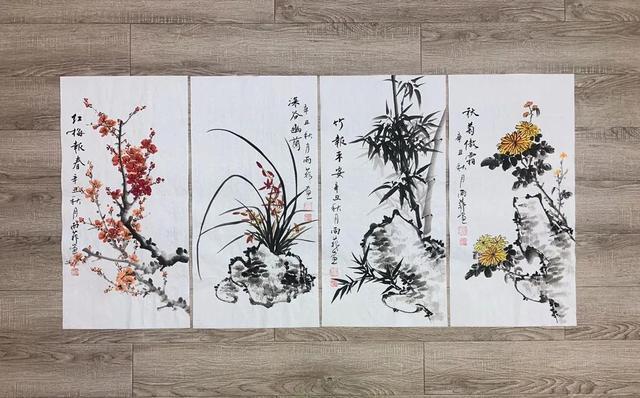 红梅報春 辛丑秋月雨
深谷幽蘭
辛丑秋月雨
竹報平安 辛丑秋月雨
秋菊傲霜
辛丑秋月雨